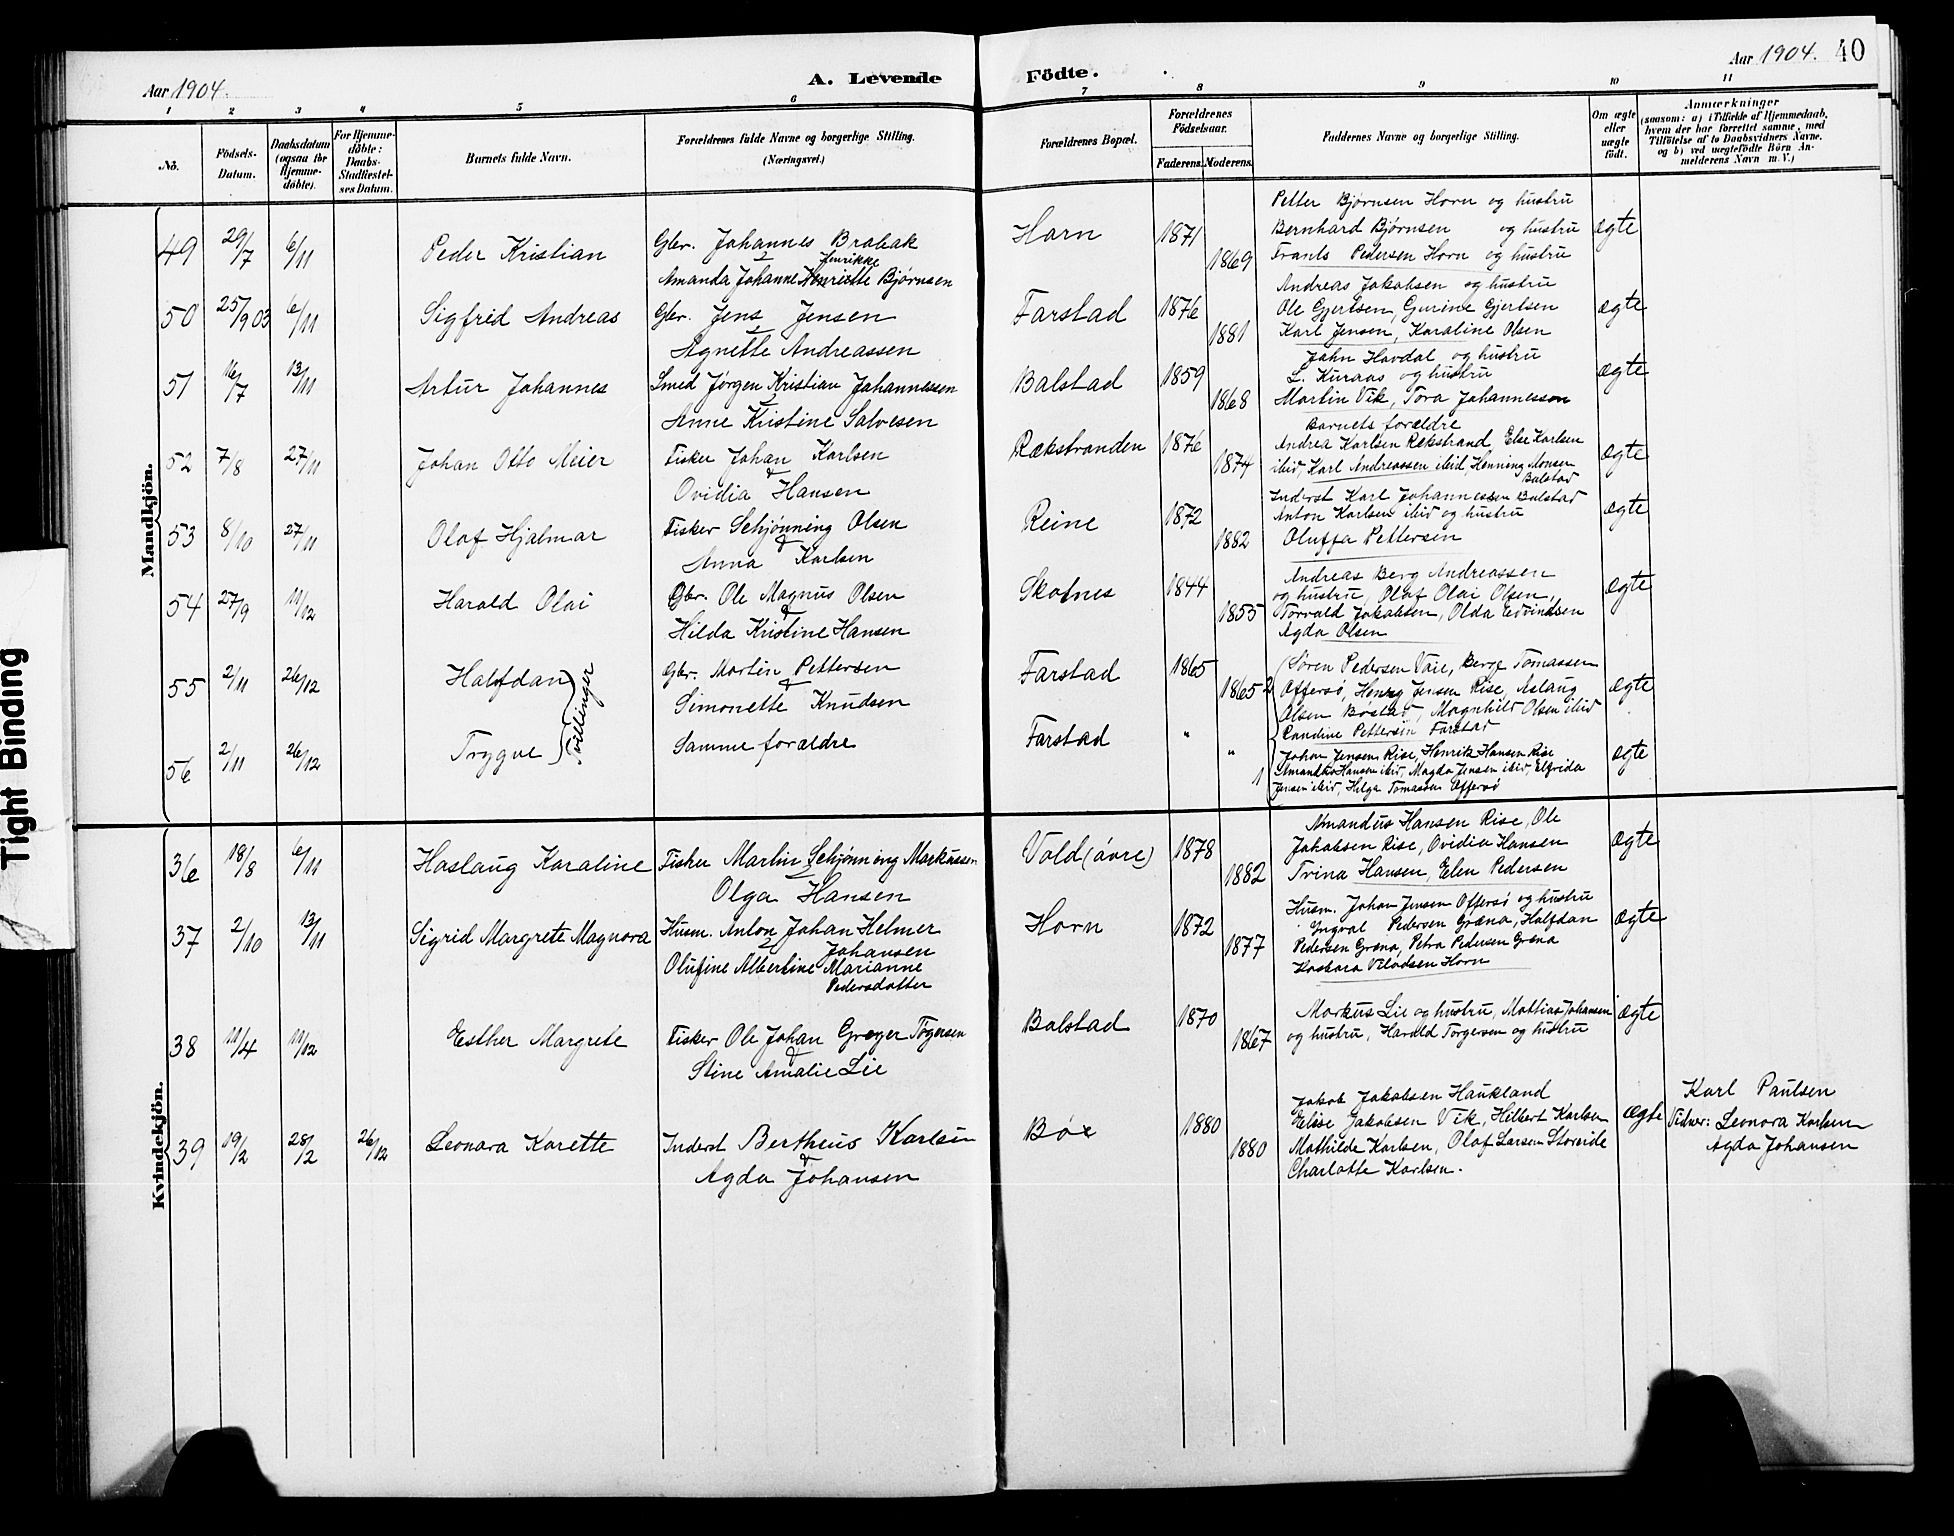 Tight Binding
Aar 1904.
A. Levende Födte.
Aar 1904. 40
1 2 3 4 5 6 7 8 9 10 11
No.
Födsels-Datum.
Daabsdatum (ogsaa for Hjemme-döbte).
For Hjemme-döbte: Daabs-Stadfæstel-ses Datum.
Barnets fulde Navn.
Forældrenes fulde Navne og borgerlige Stilling. (Næringsvei.)
Forældrenes Bopæl.
Forældrenes Födselsaar.
Faderens. Moderens.
Faddernes Navne og borgerlige Stilling.
Om ægte eller uægte födt.
Anmærkninger
(saasom: a) i Tilfælde af Hjemmedaab, hvem der har forrettet samme, med Tilföielse af to Daabsvidners Navne, og b) ved uægtefödte Börn An-melderens Navn m. V.)
Mandkjön.
49 29/7 6/11 Peder Kristian
Gbr. Johannes Brobak
&
Henrikke
Amanda Johanne Henriette Bjørnsen
Horn 1871 1869
Petter Bjørnsen Horn og hustru
Bernhard Bjørnsen og hustru
Frants Pedersen Horn og hustru
ægte
50 25/9 03 6/11 Sigfrid Andreas
Gbr. Jens Jensen
&
Agnette Andreassen
Farstad 1876 1881
Andreas Jakobsen og hustru
Ole Gjertsen, Gurine Gjertsen
Karl Jensen, Karoline Olsen
ægte
51 16/7 13/11 Artur Johannes
Smed Jørgen Kristian Johannessen
&
Anne Kristine Salvesen
Balstad 1859 1868
John Havdal og hustru
L. Kuraas og hustru
Martin Vik, Tora Johannesson
ægte
52 7/8 27/11 Johan Otto Meier
Fisker Johan Karlsen
&
Ovidia Hansen
Rækstranden 1876 1874
Barnets forældre
Andrea Karlsen Rækstrand Else Karlsen
ibid, Karl Andreassen ibid, Henning Monsen
Balstad
ægte
53 8/10 27/11 Olaf Hjalmar
Fisker Schjønning Olsen
&
Anna Karlsen
Reine 1872 1882
Inderst Karl Johannessen Balstad
Anton Karlsen ibid og hustru
Oluffa Pettersen
ægte
54 27/9 11/12 Harald Olai
Gbr. Ole Magnus Olsen
&
Hilda Kristine Hansen
Skotnes 1844 1855
Andreas Berg Andreassen
og hustru, Olaf Olai Olsen,
Torvald Jakobsen, Olda Edvindsen
Agda Olsen
ægte
55 2/11 26/12 Halfdan
Tvillinger
Gbr. Martin Pettersen
&
Simonette Knudsen
Farstad 1865 1865 2
Søren Pedersen Vaie, Berge Tomassen
Offersø, Henry Jensen Rise, Aslaug
Olsen Bøstad, Magnhild Olsen ibid
Randine Pettersen Farstad
ægte
56 2/11 26/12 Trygve
Samme forældre
Farstad " " 1
Johan Jensen Rise, Henrik Hansen Rise
Amandus Hansen ibid, Magda Jensen ibid, Elfrida
Jensen ibid, Helga Tomassen Offersø
ægte
Kvindekjön.
36 18/8 6/11 Haslaug Karaline
Fisker Martin Schjønning Markussen
&
Olga Hansen
Vold (øvre) 1878 1882
Amandus Hansen Rise, Ole
Jakobsen Rise, Ovidia Hansen
Trina Hansen, Elen Pedersen
ægte
37 2/10 13/11 Sigrid Margrete Magnora
Husm. Anton Johan Helmer
& Johansen
Olufine Albertine Marianne
Pedersdatter
Horn 1872 1877
Husm. Johan Jensen Offersø og hustru
Ingval Pedersen Græna, Halfdan
Pedersen Græna, Petra Pedersen Græna
Horn
ægte
38 11/4 11/12 Esther Margrete
Fisker Ole Johan Greger Togersen
&
Stine Amalie Lie
Balstad 1870 1867
Markus Lie og hustru, Mathias Johansen
og hustru, Harald Torgersen og hustru
ægte
39 19/2 28/2 26/12 Leonora Karette
Inderst Bertheus Karlsen
&
Agda Johansen
Bøe 1880 1880
Jakob Jakobsen Haukland
Elise Jakobsen Vik, Hilbert Karlsen
Mathilde Karlsen, Olaf Larsen Storeide
Charlotte Karlsen.
ægte
Karl Paulsen
Vidner: Leonora Karlsen
Agda Johansen